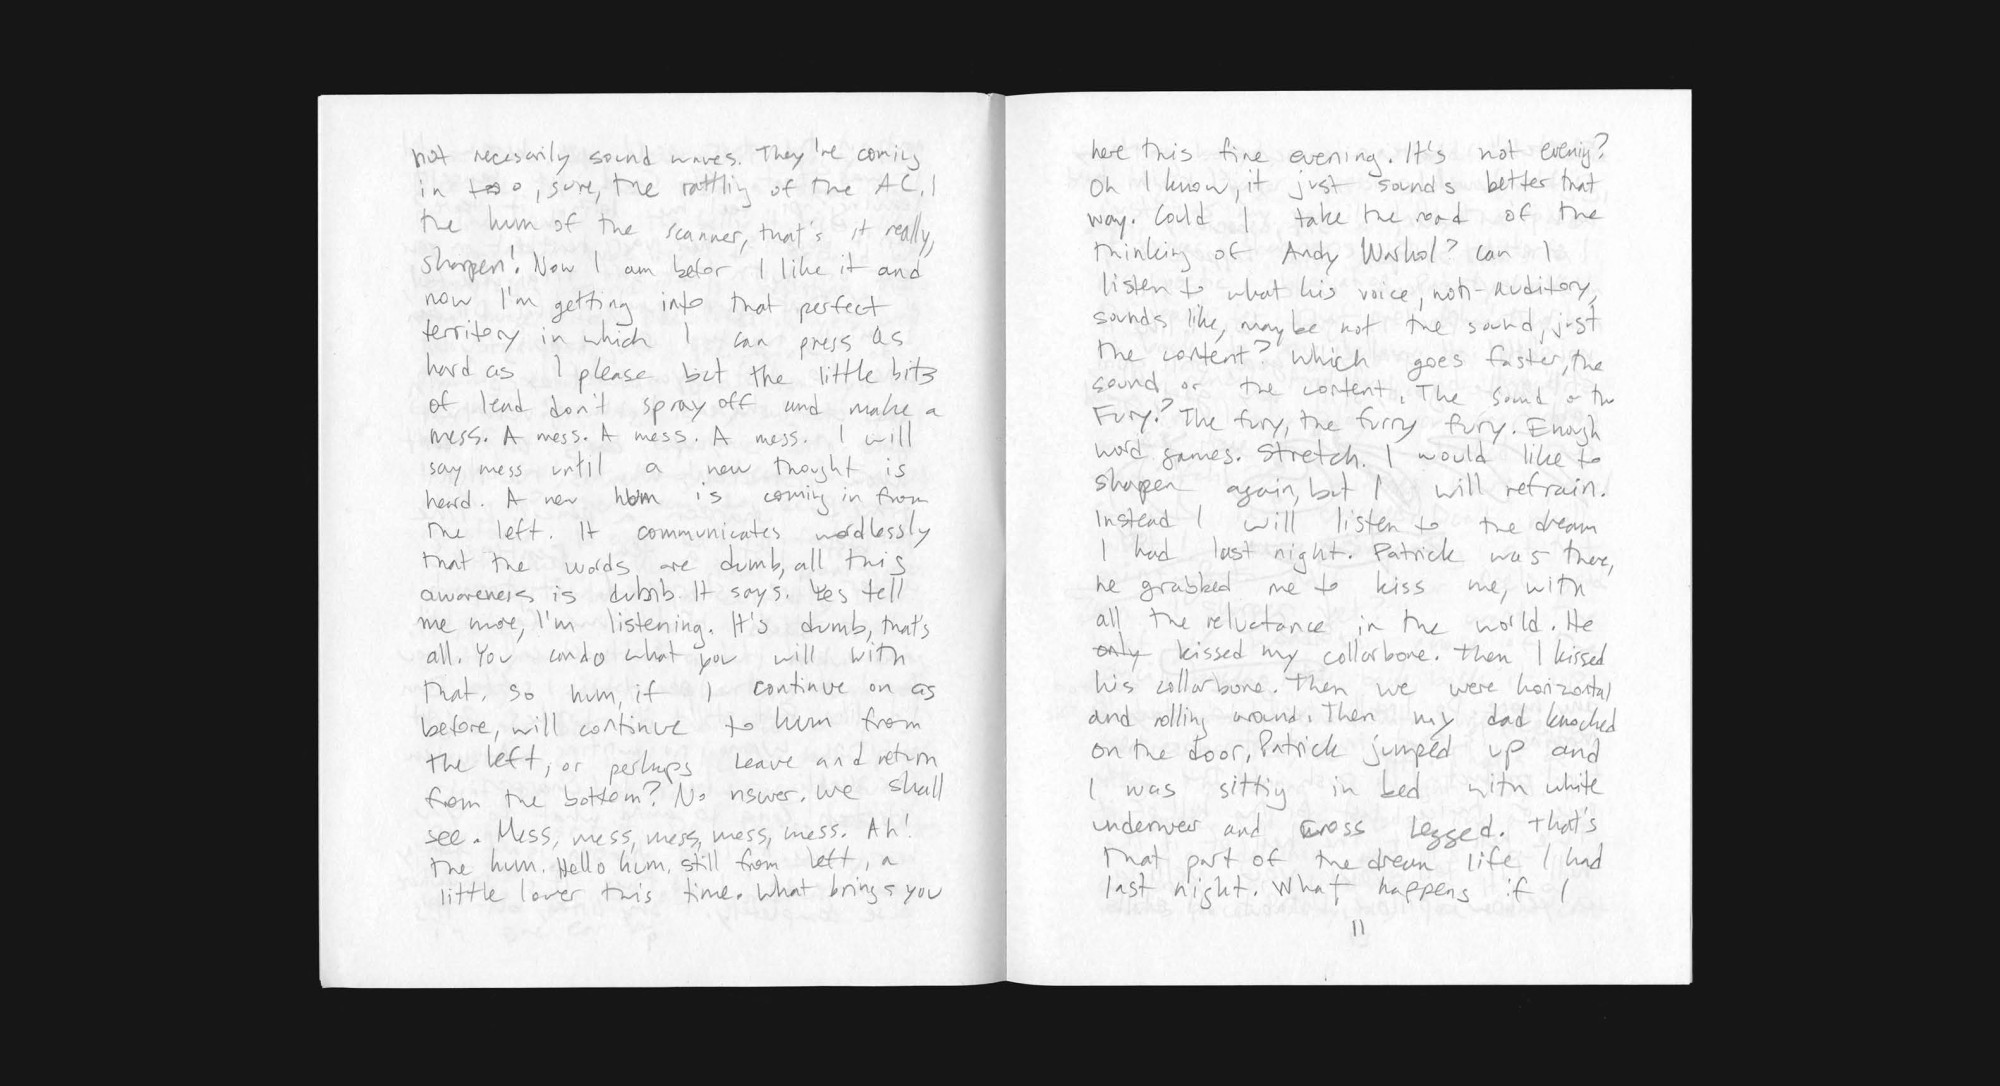 not necesarily sound waves. They're coming
in too, sure, the rattlig of the AC, I
the hum of the scanner, that's it really,
sharpen! Now I am betor I like it and
now I'm getting into that perfect
territory in which I can press as
hard as I please but the little bits
of lead don't spray off and make a
mess. A mess. A mess. A mess. I will
say mess until a new thought is
heard. A new hum is coming in from
the left. It communicates wordlessly
that the words are dumb, all this
awareness is dumb. It says. Yes tell
me more, I'm listening. It's dumb, that's
all. You can do what you will with
that. So hum, if I continue on as
before, will continue to hum from
the left, or perhaps leave and return
from the bottom? No nswer. We shall
see. Mess, mess, mess, mess, mess. Ah!
the hum. Hello hum, still from left, a
little lower this time. What brings you
here this fine evening. It's not evenig?
Oh I know, it just sounds better that
way. Could I take the road of the
thinking of Andy Warhol? Can I
listen to what his voice, non-auditory,
sounds like, maybe not the sound, just
the content? Which goes faster, the
sound or the content. The sound or the
Fury? The fury, the furry fury. Enough
word games. Stretch. I would like to
sharpen again, but I will refrain.
Instead I will listen to the dream
I had last night. Patrick was there,
he grabbed me to kiss me, with
all the reluctance in the world. He
only kissed my collarbone. Then I kissed
his collarbone. Then we were horizontal
and rolling around. Then my dad knocked
on the door, Patrick jumped up and
I was sittig in bed with white
underwear and cross legged. That's
that part of the dream life I had
last night. What happens if I
11